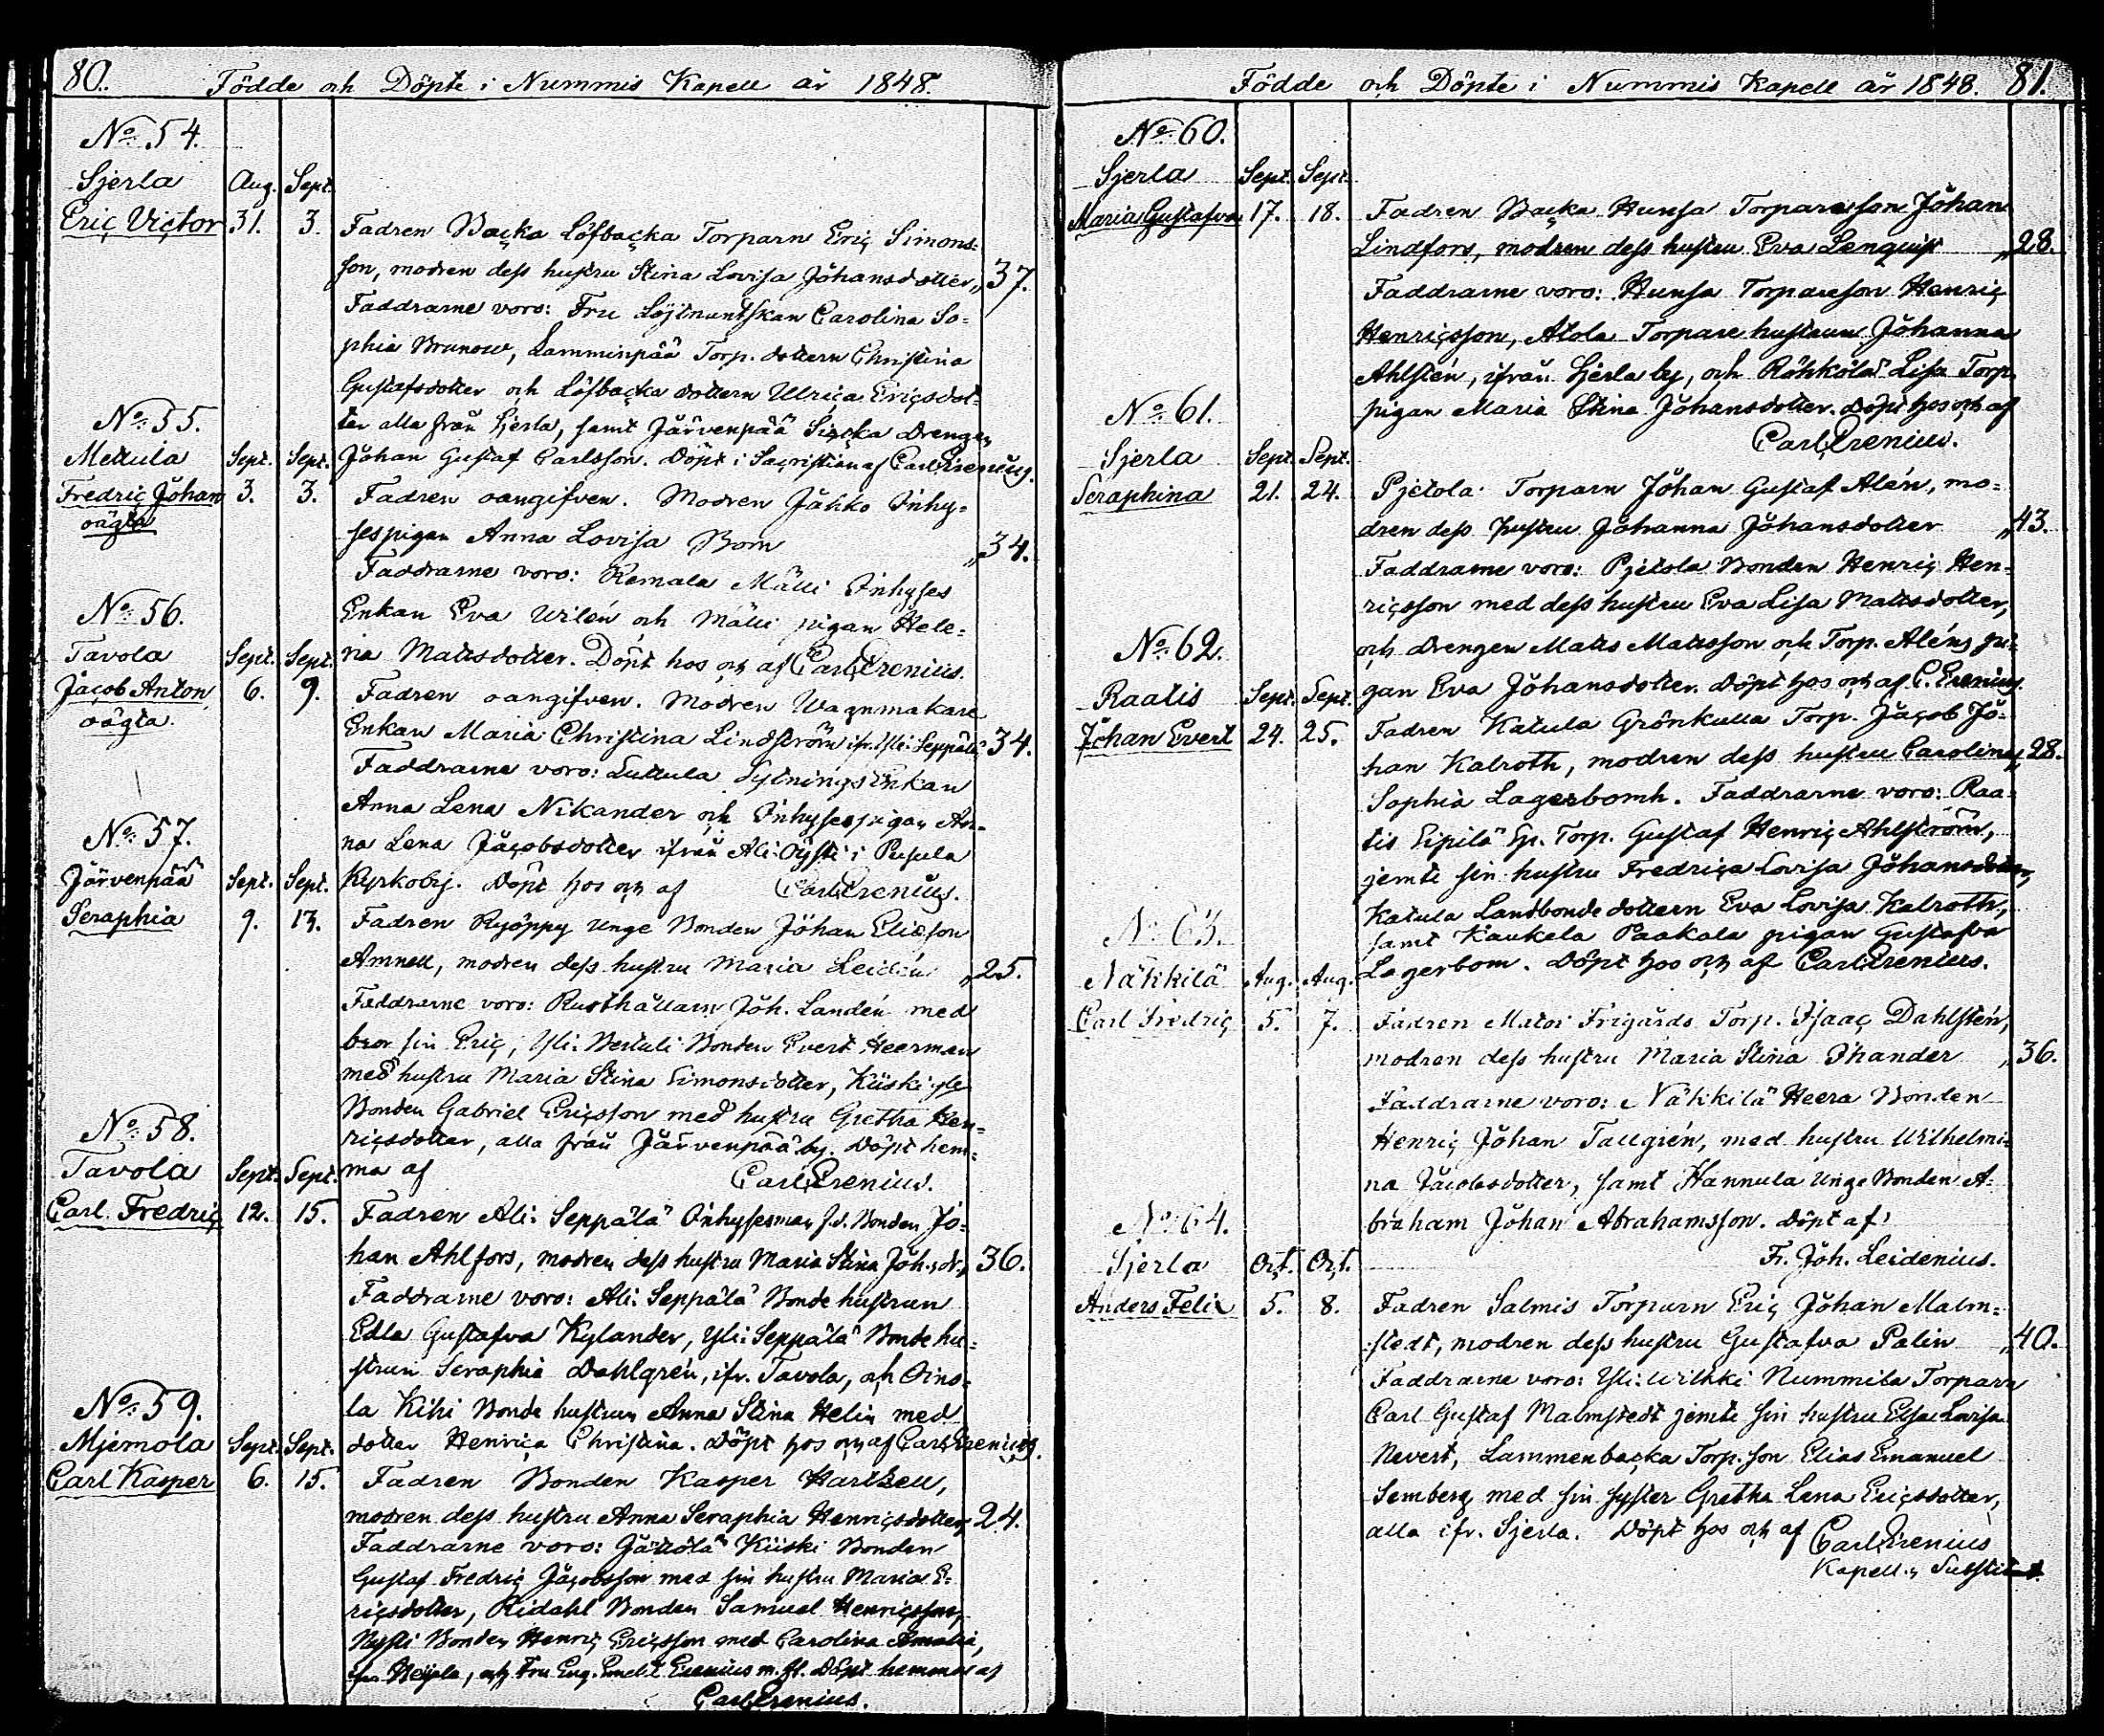 80.
Födde och Döpte i Nummis Kapell år 1848.
No. 54.
Sjerla Aug. Sept.
Eric Victor 31. 3. Fadren Backa Löfbacka Torparn Eric Simons-
son, modren dess hustru Stina Lovisa Johansdotter „ 37.
Faddrarne voro: Fru Löjtnantskan Carolina So-
phia Brunow, Lamminpää Torp. dottern Christina
Gustafsdotter och Löfbacka dottern Ulrica Ericsdot-
ter alla från Sjerla, samt Järvenpää Drengen
Johan Gustaf Carlsson. Döpt i Sacristian af Carl Erenius.
No. 55.
Mettula Sept. Sept.
Fredric Johan 3. 3. Fadren oangifven. Modren Jakko Inhy-
oägta
sespigan Anna Lovisa Bom „ 34.
Faddrarne voro: Remala Mälli Inhyses
Enkan Eva Wilén och Mälli pigan Hele-
na Mattsdotter. Döpt hos och af Carl Erenius.
No. 56.
Tavola Sept. Sept.
Jacob Anton 6. 9. Fadren oangifven. Modren Wagnmakare
oägta.
Enkan Maria Christina Lindström ifr. Yli-Seppälä 34.
Faddrarne voro: Suttula Sytnings Enkan
Anna Lena Nikander och Inhysespigan An-
na Lena Jacobsdotter ifrån Ali-Öysti i Pusula
Kyrkoby. Döpt hos och af Carl Erenius.
No. 57.
Järvenpää Sept. Sept.
Seraphia 9. 13. Fadren Ryöppy Unge Bonden Johan Eliesson
Amnell, modren dess hustru Maria Leidén „ 25.
Faddrarne voro: Rusthållarn Joh. Landén med
bror sin Eric, Yli-Bertuli Bonden Evert Heerman
med hustru Maria Stina Simonsdotter, Kiiski
Bonden Gabriel Ericsson med hustru Gretha Hen-
ricsdotter, alla från Järvenpää by. Döpt hem-
ma af Carl Erenius.
No. 58.
Tavola Sept. Sept.
Carl Fredric 12. 15. Fadren Ali-Seppälä Inhysesman f.d. Bonden Jo-
han Ahlfors, modren dess hustru Maria Stina Joh.sdr. „ 36.
Faddrarne voro: Ali-Seppälä Bonde hustrun
Edla Gustafva Kylander, Yli-Seppälä Bonde hu-
strun Seraphia Dahlgrén, ifr. Tavola, och Oino-
la Kihi Bonde hustrun Anna Stina Helin med
dotter Henrica Christina. Döpt hos och af Carl Erenius.
No. 59.
Mjemola Sept. Sept.
Carl Kasper 6. 15. Fadren Bonden Kasper Hartzell,
modren dess hustru Anna Seraphia Henricsdotter 24.
Faddrarne voro: Jättölä Kiiski Bonden
Gustaf Fredric Jacobsson med sin hustru Maria E-
ricsdotter, Ridahl Bonden Samuel Henricsson,
Nysti Bonden Henric Ericsson med Carolina Amalia,
ifr. Heijala, och Fru Eug. Erenius m. fl. Döpt hemma af
Carl Erenius.
Födde och Döpte i Nummis Kapell år 1848. 81.
No. 60.
Sjerla Sept. Sept.
Maria Gustafva 17. 18. Fadren Backa Hunsa Torparesson Johan
Lindfors, modren dess hustru Eva Lenquist „ 28.
Faddrarne voro: Hunsa Torpareson Henric
Henricsson, Atola Torpare hustrun Johanna
Ahlstén, ifrån Sjerla by, och Röhkölä Lisa Torp.
pigan Maria Stina Johansdotter. Döpt hos och af
Carl Erenius.
No. 61.
Sjerla Sept. Sept.
Seraphina 21. 24. Pjetola Torparn Johan Gustaf Alén, mo-
dren dess hustru Johanna Johansdotter „ 43.
Faddrarne voro: Pjetola Bonden Henric Hen-
ricsson med dess hustru Eva Lisa Mattsdotter,
och Drengen Matts Mattsson och Torp. Aléns pi-
gan Eva Johansdotter. Döpt hos och af C. Erenius.
No. 62.
Raatis Sept. Sept.
Johan Evert 24. 25. Fadren Katula Grönkulla Torp. Jacob Jo-
han Kalroth, modren dess hustru Carolina „ 28.
Sophia Lagerbomh. Faddrarne voro: Raa-
tis Eipilä Torp. Gustaf Henric Ahlström,
jemte sin hustru Fredrica Lovisa Johansdotter,
Katula Landbonde dottern Eva Lovisa Kalroth,
samt Kaukela Paakala pigan Gustafva
Lagerbom. Döpt hos och af Carl Erenius.
No. 63.
Näkkilä Aug. Aug.
Carl Fredric 5. 7. Fadren Maloi Frigårds Torp. Isaac Dahlstén,
modren dess hustru Maria Stina Ihander „ 36.
Faddrarne voro: Näkkilä Heera Bonden
Henric Johan Tallgrén, med hustru Wilhelmi-
na Jacobsdotter, samt Hannula Unge Bonden A-
braham Johan Abrahamsson. Döpt af
Fr. Joh. Leidenius.
No. 64.
Sjerla Oct. Oct.
Anders Felix 5. 8. Fadren Salmis Torparn Eric Johan Malm-
stedt, modren dess hustru Gustafva Palin „ 40.
Faddrarne voro: Yli-Wilkki Nummila Torparn
Carl Gustaf Malmstedt jemte sin hustru Elsa Lovisa
Nevert, Lammenbacka Torp. son Elias Emanuel
Semberg med sin syster Gretha Lena Ericsdotter,
alla ifr. Sjerla. Döpt hos och af Carl Erenius
Kapell.s Substitut.